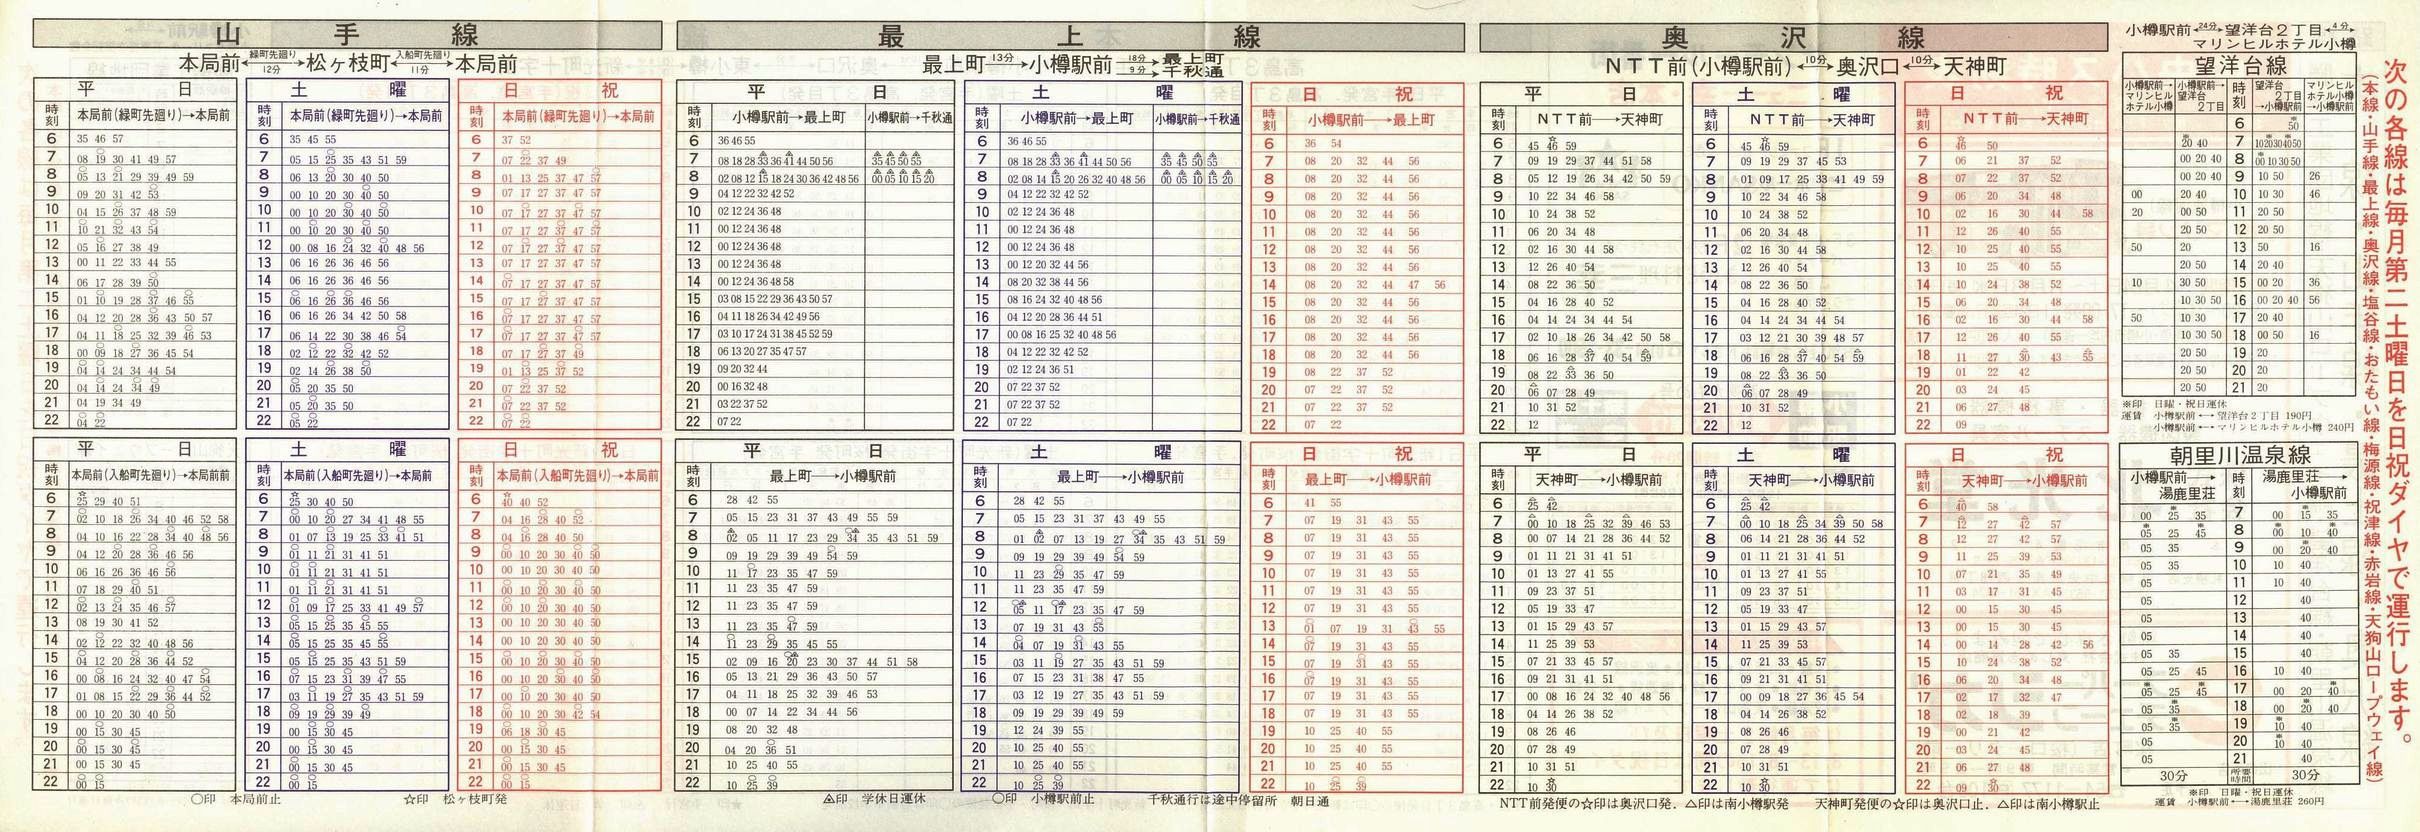 山手線
本局前 緑町先廻り 12分 松ヶ枝町 入船町先廻り 11分 本局前
平日
時刻 本局前(緑町先廻り)→本局前
6 35 46 57
7 08 19 30 41 49 57
8 05 13 21 29 39 49 59
9 09 20 31 42 53
10 04 15 26 37 48 59
11 10 21 32 43 54
12 05 16 27 38 49
13 00 11 22 33 44 55
14 06 17 28 39 50
15 01 10 19 28 37 46 55
16 04 12 20 28 36 43 50 57
17 04 11 18 25 32 39 46 53
18 00 09 18 27 36 45 54
19 04 14 24 34 44 54
20 04 14 24 34 49
21 04 19 34 49
22 04 22
土曜
時刻 本局前(緑町先廻り)→本局前
6 35 45 55
7 05 15 25 35 43 51 59
8 06 13 20 30 40 50
9 00 10 20 30 40 50
10 00 10 20 30 40 50
11 00 10 20 30 40 50
12 00 08 16 24 32 40 48 56
13 06 16 26 36 46 56
14 06 16 26 36 46 56
15 06 16 26 36 46 56
16 06 16 26 34 42 50 58
17 06 14 22 30 38 46 54
18 02 12 22 32 42 52
19 02 14 26 38 50
20 05 20 35 50
21 05 20 35 50
22 05 22
日祝
時刻 本局前(緑町先廻り)→本局前
6 37 52
7 07 22 37 49
8 01 13 25 37 47 57
9 07 17 27 37 47 57
10 07 17 27 37 47 57
11 07 17 27 37 47 57
12 07 17 27 37 47 57
13 07 17 27 37 47 57
14 07 17 27 37 47 57
15 07 17 27 37 47 57
16 07 17 27 37 47 57
17 07 17 27 37 47 57
18 07 17 27 37 49
19 01 13 25 37 52
20 07 22 37 52
21 07 22 37 52
22 07 22
平日
時刻 本局前(入船町先廻り)→本局前
6 ☆25 29 40 51
7 02 10 18 26 34 40 46 52 58
8 04 10 16 22 28 34 40 48 56
9 04 12 20 28 36 46 56
10 06 16 26 36 46 56
11 07 18 29 40 51
12 02 13 24 35 46 57
13 08 19 30 41 52
14 02 12 22 32 40 48 56
15 04 12 20 28 36 44 52
16 00 08 16 24 32 40 47 54
17 01 08 15 22 29 36 44 52
18 00 10 20 30 40 50
19 00 15 30 45
20 00 15 30 45
21 00 15 30 45
22 00 15
土曜
時刻 本局前(入船町先廻り)→本局前
6 ☆25 30 40 50
7 00 10 20 27 34 41 48 55
8 01 07 13 19 25 33 41 51
9 01 11 21 31 41 51
10 01 11 21 31 41 51
11 01 11 21 31 41 51
12 01 09 17 25 33 41 49 57
13 05 15 25 35 45 55
14 05 15 25 35 45 55
15 05 15 25 35 43 51 59
16 07 15 23 31 39 47 55
17 03 11 19 27 35 43 51 59
18 09 19 29 39 49
19 00 15 30 45
20 00 15 30 45
21 00 15 30 45
22 00 15
日祝
時刻 本局前(入船町先廻り)→本局前
6 ☆40 40 52
7 04 16 28 40 52
8 04 16 28 40 50
9 00 10 20 30 40 50
10 00 10 20 30 40 50
11 00 10 20 30 40 50
12 00 10 20 30 40 50
13 00 10 20 30 40 50
14 00 10 20 30 40 50
15 00 10 20 30 40 50
16 00 10 20 30 40 50
17 00 10 20 30 40 50
18 00 10 20 30 42 54
19 06 18 30 45
20 00 15 30 45
21 00 15 30 45
22 00 15
○印 本局前止 ☆印 松ヶ枝町発
最上線
最上町 13分 小樽駅前 18分 最上町 9分 千秋通
平日
時刻 小樽駅前→最上町 小樽駅前→千秋通
6 36 46 55
7 08 18 28 33 36 41 44 50 56 35 45 50 55
8 02 08 12 15 18 24 30 36 42 48 56 00 05 10 15 20
9 04 12 22 32 42 52
10 02 12 24 36 48
11 00 12 24 36 48
12 00 12 24 36 48
13 00 12 24 36 48
14 00 12 24 36 48 58
15 03 08 15 22 29 36 43 50 57
16 04 11 18 26 34 42 49 56
17 03 10 17 24 31 38 45 52 59
18 06 13 20 27 35 47 57
19 09 20 32 44
20 00 16 32 48
21 03 22 37 52
22 07 22
土曜
時刻 小樽駅前→最上町 小樽駅前→千秋通
6 36 46 55
7 08 18 28 33 36 41 44 50 56 35 45 50 55
8 02 08 14 15 20 26 32 40 48 56 00 05 10 15 20
9 04 12 22 32 42 52
10 02 12 24 36 48
11 00 12 24 36 48
12 00 12 24 36 48
13 00 12 20 32 44 56
14 08 20 32 38 44 56
15 08 16 24 32 40 48 56
16 04 12 20 28 36 44 51
17 00 08 16 25 32 40 48 56
18 04 12 22 32 42 52
19 02 12 24 36 51
20 07 22 37 52
21 07 22 37 52
22 07 22
日祝
時刻 小樽駅前→最上町
6 36 54
7 08 20 32 44 56
8 08 20 32 44 56
9 08 20 32 44 56
10 08 20 32 44 56
11 08 20 32 44 56
12 08 20 32 44 56
13 08 20 32 44 56
14 08 20 32 44 47 56
15 08 20 32 44 56
16 08 20 32 44 56
17 08 20 32 44 56
18 08 20 32 44 56
19 08 22 37 52
20 07 22 37 52
21 07 22 37 52
22 07 22
平日
時刻 最上町→小樽駅前
6 28 42 55
7 05 15 23 31 37 43 49 55 59
8 02 05 11 17 23 29 34 35 43 51 59
9 09 19 29 39 49 54 59
10 11 17 23 35 47 59
11 11 23 35 47 59
12 11 23 35 47 59
13 11 23 35 47 59
14 11 23 29 35 45 55
15 02 09 16 20 23 30 37 44 51 58
16 05 13 21 29 36 43 50 57
17 04 11 18 25 32 39 46 53
18 00 07 14 22 34 44 56
19 08 20 32 48
20 04 20 36 51
21 10 25 40 55
22 10 25 39
土曜
時刻 最上町→小樽駅前
6 28 42 55
7 05 15 23 31 37 43 49 55
8 01 02 07 13 19 27 34 35 43 51 59
9 09 19 29 39 49 54 59
10 11 23 29 35 47 59
11 11 23 35 47 59
12 05 11 17 23 35 47 59
13 07 19 31 43 55
14 04 07 19 31 43 55
15 03 11 19 27 35 43 51 59
16 07 15 23 31 38 47 55
17 03 12 19 27 35 43 51 59
18 09 19 29 39 49 59
19 12 24 39 55
20 10 25 40 55
21 10 25 40 55
22 10 25 39
日祝
時刻 最上町→小樽駅前
6 41 55
7 07 19 31 43 55
8 07 19 31 43 55
9 07 19 31 43 55
10 07 19 31 43 55
11 07 19 31 43 55
12 07 19 31 43 55
13 01 07 19 31 43 55
14 07 19 31 43 55
15 07 19 31 43 55
16 07 19 31 43 55
17 07 19 31 43 55
18 07 19 31 43 55
19 10 25 40 55
20 10 25 40 55
21 10 25 40 55
22 10 25 39
△印 学休日運休 ○印 小樽駅前止 千秋通行は途中停留所 朝日通
奥沢線
NTT前(小樽駅前) 10分 奥沢口 10分 天神町
平日
時刻 NTT前→天神町
6 45 ☆46 59
7 09 19 29 37 44 51 58
8 05 12 19 26 34 42 50 59
9 10 22 34 46 58
10 10 24 38 52
11 06 20 34 48
12 02 16 30 44 58
13 12 26 40 54
14 08 22 36 50
15 04 16 28 40 52
16 04 14 24 34 44 54
17 02 10 18 26 34 42 50 58
18 06 16 28 37 40 54 59
19 08 22 33 36 50
20 06 07 28 49
21 10 31 52
22 12
土曜
時刻 NTT前→天神町
6 45 ☆46 59
7 09 19 29 37 45 53
8 01 09 17 25 33 41 49 59
9 10 22 34 46 58
10 10 24 38 52
11 06 20 34 48
12 02 16 30 44 58
13 12 26 40 54
14 08 22 36 50
15 04 16 28 40 52
16 04 14 24 34 44 54
17 03 12 21 30 39 48 57
18 06 16 28 37 40 54 59
19 08 22 33 36 50
20 06 07 28 49
21 10 31 52
22 12
日祝
時刻 NTT前→天神町
6 ☆46 50
7 06 21 37 52
8 07 22 37 52
9 06 20 34 48
10 02 16 30 44 58
11 12 26 40 55
12 10 25 40 55
13 10 25 40 55
14 10 24 38 52
15 06 20 34 48
16 02 16 30 44 58
17 12 26 40 55
18 11 27 30 43 55
19 01 22 42
20 03 24 45
21 06 27 48
22 09
平日
時刻 天神町→小樽駅前
6 25 42
7 00 10 18 25 32 39 46 53
8 00 07 14 21 28 36 44 52
9 01 11 21 31 41 51
10 01 13 27 41 55
11 09 23 37 51
12 05 19 33 47
13 01 15 29 43 57
14 11 25 39 53
15 07 21 33 45 57
16 09 21 31 41 51
17 00 08 16 24 32 40 48 56
18 04 14 26 38 52
19 08 26 46
20 07 28 49
21 10 31 51
22 10 30
土曜
時刻 天神町→小樽駅前
6 25 42
7 00 10 18 25 34 39 50 58
8 06 14 21 28 36 44 52
9 01 11 21 31 41 51
10 01 13 27 41 55
11 09 23 37 51
12 05 19 33 47
13 01 15 29 43 57
14 11 25 39 53
15 07 21 33 45 57
16 09 21 31 41 51
17 00 09 18 27 36 45 54
18 04 14 26 38 52
19 08 26 46
20 07 28 49
21 10 31 51
22 10 30
日祝
時刻 天神町→小樽駅前
6 40 58
7 12 27 42 57
8 12 27 42 57
9 11 25 39 53
10 07 21 35 49
11 03 17 31 45
12 00 15 30 45
13 00 15 30 45
14 00 14 28 42 56
15 10 24 38 52
16 06 20 34 48
17 02 17 32 47
18 02 18 39
19 00 21 42
20 03 24 45
21 06 27 48
22 09 30
NTT前発便の☆印は奥沢口発.△印は南小樽駅発 天神町発便の☆印は奥沢口止.△印は南小樽駅止
小樽駅前 24分 望洋台2丁目 4分
マリンヒルホテル小樽
望洋台線
小樽駅前→マリンヒルホテル小樽 小樽駅前→望洋台2丁目 時刻 望洋台2丁目→小樽駅前 マリンヒルホテル小樽→小樽駅前
6 ※50
※20 40 7 10 20 30 40 50
00 20 40 8 ※00 10 30 50
00 20 40 9 10 50 26
00 20 40 10 10 30 46
20 00 50 11 20 50
20 50 12 20 50
50 20 13 50 16
20 50 14 20 40
10 30 50 15 00 20 36
10 30 50 16 00 20 40 56
50 10 30 17 20 40
10 30 50 18 00 50 16
20 50 19 20
20 50 20 20
20 50 21 20
※印 日曜・祝日運休
運賃 小樽駅前←→望洋台2丁目 190円
小樽駅前←→マリンヒルホテル小樽 240円
朝里川温泉線
小樽駅前→湯鹿里荘 時刻 湯鹿里荘→小樽駅前
00 ※25 35 7 00 ※15 35
05 ※25 45 8 00 ※10 40
05 35 9 00 ※20 40
05 35 10 10 40
05 11 10 40
05 12 40
05 13 40
05 14 40
05 35 15 40
05 25 45 16 10 40
※05 25 ※45 17 00 20 ※40
05 ※35 18 00 ※20 40
05 ※35 19 ※10 40
05 20 ※10 40
05 21 40
30分 所要時間 30分
※印 日曜・祝日運休
運賃 小樽駅前←→湯鹿里荘 260円
次の各線は毎月第二土曜日を日祝ダイヤで運行します。
(本線・山手線・最上線・奥沢線・塩谷線・おたもい線・梅源線・祝津線・赤岩線・天狗山ロープウェイ線)